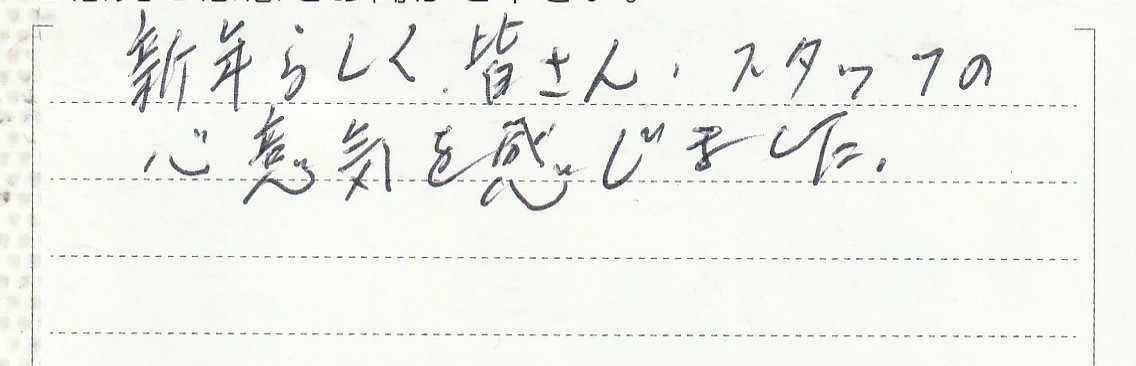 新年らしく、皆さん、スタッフの
心意気を感じました。